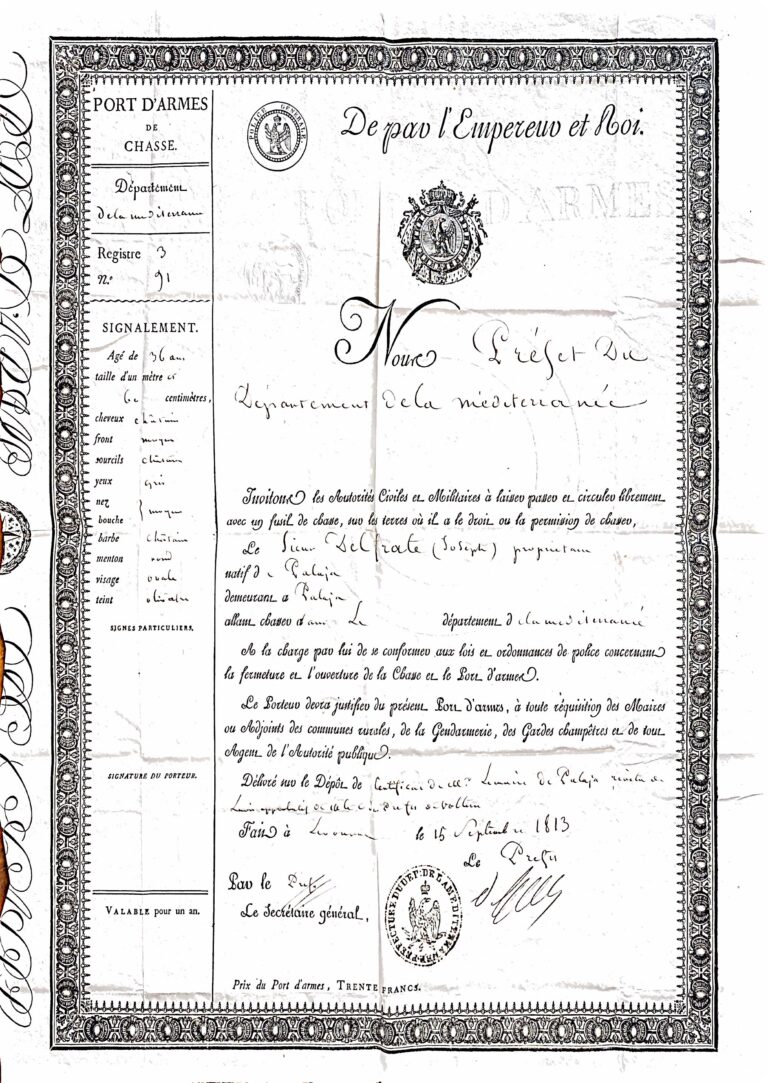 PORT D'ARMES
DE
CHASSE.
Département
de la mediterranée
Registre 3
N.° 91
SIGNALEMENT.
Agé de 36 ans
taille d'un mètre et
centimètres,
cheveux châtain
front moyen
sourcils châtain
yeux gris
nez
bouche } moyen
barbe châtain
menton rond
visage ovale
teint olivâtre
SIGNES PARTICULIERS.
SIGNATURE DU PORTEUR.
VALABLE pour un an.
POLICE GÉNÉRALE
De par l'Empereur et Roi.
Nous Préfet Du
Département de la méditerranée
Invitons les Autorités Civiles et Militaires à laisser passer et circuler librement
avec un fusil de chasse, sur les terres où il a le droit ou la permission de chasser,
Le Sieur Delfrate (Joseph) propriétaire
natif de Palaja
demeurant à Palaja
allant chasser dans Le département de la mediterranée
A la charge par lui de se conformer aux lois et ordonnances de police concernant
la fermeture et l'ouverture de la Chasse et le Port d'armes.
Le Porteur devra justifier du présent Port d'armes, à toute réquisition des Maires
ou Adjoints des communes rurales, de la Gendarmerie, des Gardes champêtres et de tout
Agent de l'Autorité publique.
Délivré sur le Dépôt de Certificat de Mr. Le maire de Palaja
Fait à Livourne le 15 Septembre 1813
Le Préfet
Par le Préfet
Le Secrétaire général,
PRÉFECTURE DU DÉP. DE LA MÉDITERRANÉE
Prix du Port d'armes, TRENTE FRANCS.